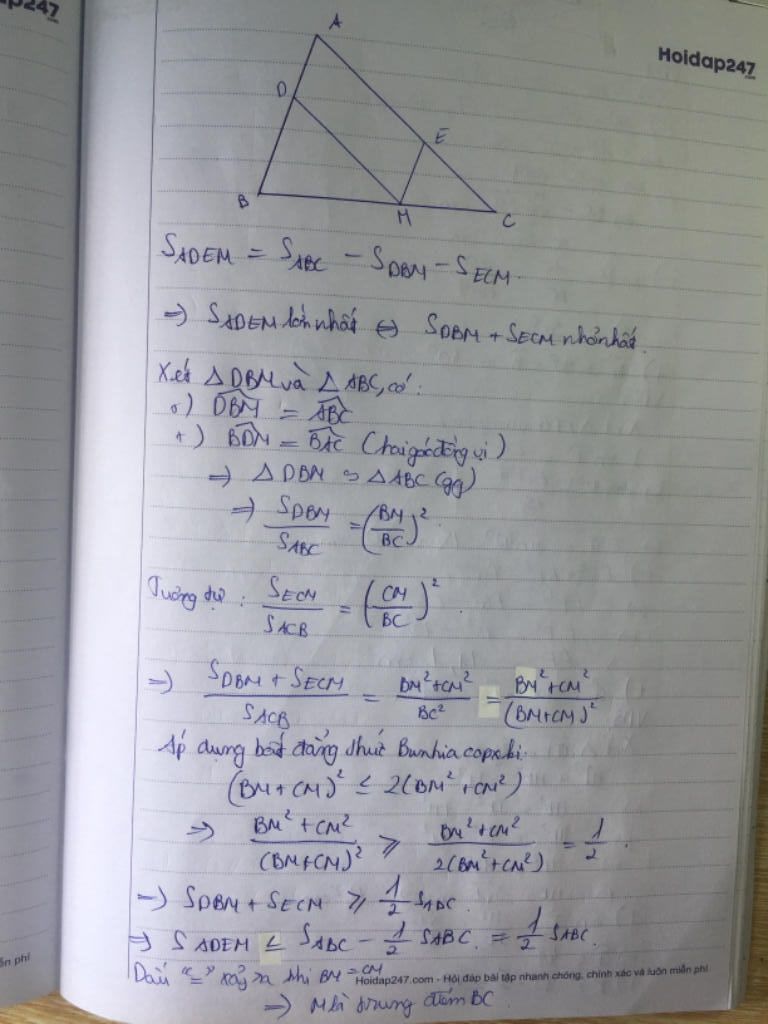 ap247
.com
Hoidap247
.com
A
D
E
B
M
C
S_ADEM = S_ABC - S_DBM - S_ECM.
=> S_ADEM lớn nhất <=> S_DBM + S_ECM nhỏ nhất.
Xét △DBM và △ABC, có:
+) DBM^ = ABC^
+) BDM^ = BAC^ (hai góc đồng vị)
=> △DBM ∽ △ABC (gg)
=> S_DBM / S_ABC = (BM/BC)².
Tương tự: S_ECM / S_ACB = (CM/BC)².
=> (S_DBM + S_ECM) / S_ACB = (BM² + CM²) / BC² = (BM² + CM²) / (BM + CM)²
Áp dụng bất đẳng thức Bunhiacopxki.
(BM + CM)² ≤ 2(BM² + CM²)
=> (BM² + CM²) / (BM + CM)² ≥ (BM² + CM²) / 2(BM² + CM²) = 1/2.
=> S_DBM + S_ECM ≥ 1/2 S_ABC.
=> S_ADEM ≤ S_ABC - 1/2 S_ABC. = 1/2 S_ABC.
Dấu "=" xảy ra khi BM = CM
ễn phí
Hoidap247.com - Hỏi đáp bài tập nhanh chóng, chính xác và luôn miễn phí
=> M là trung điểm BC